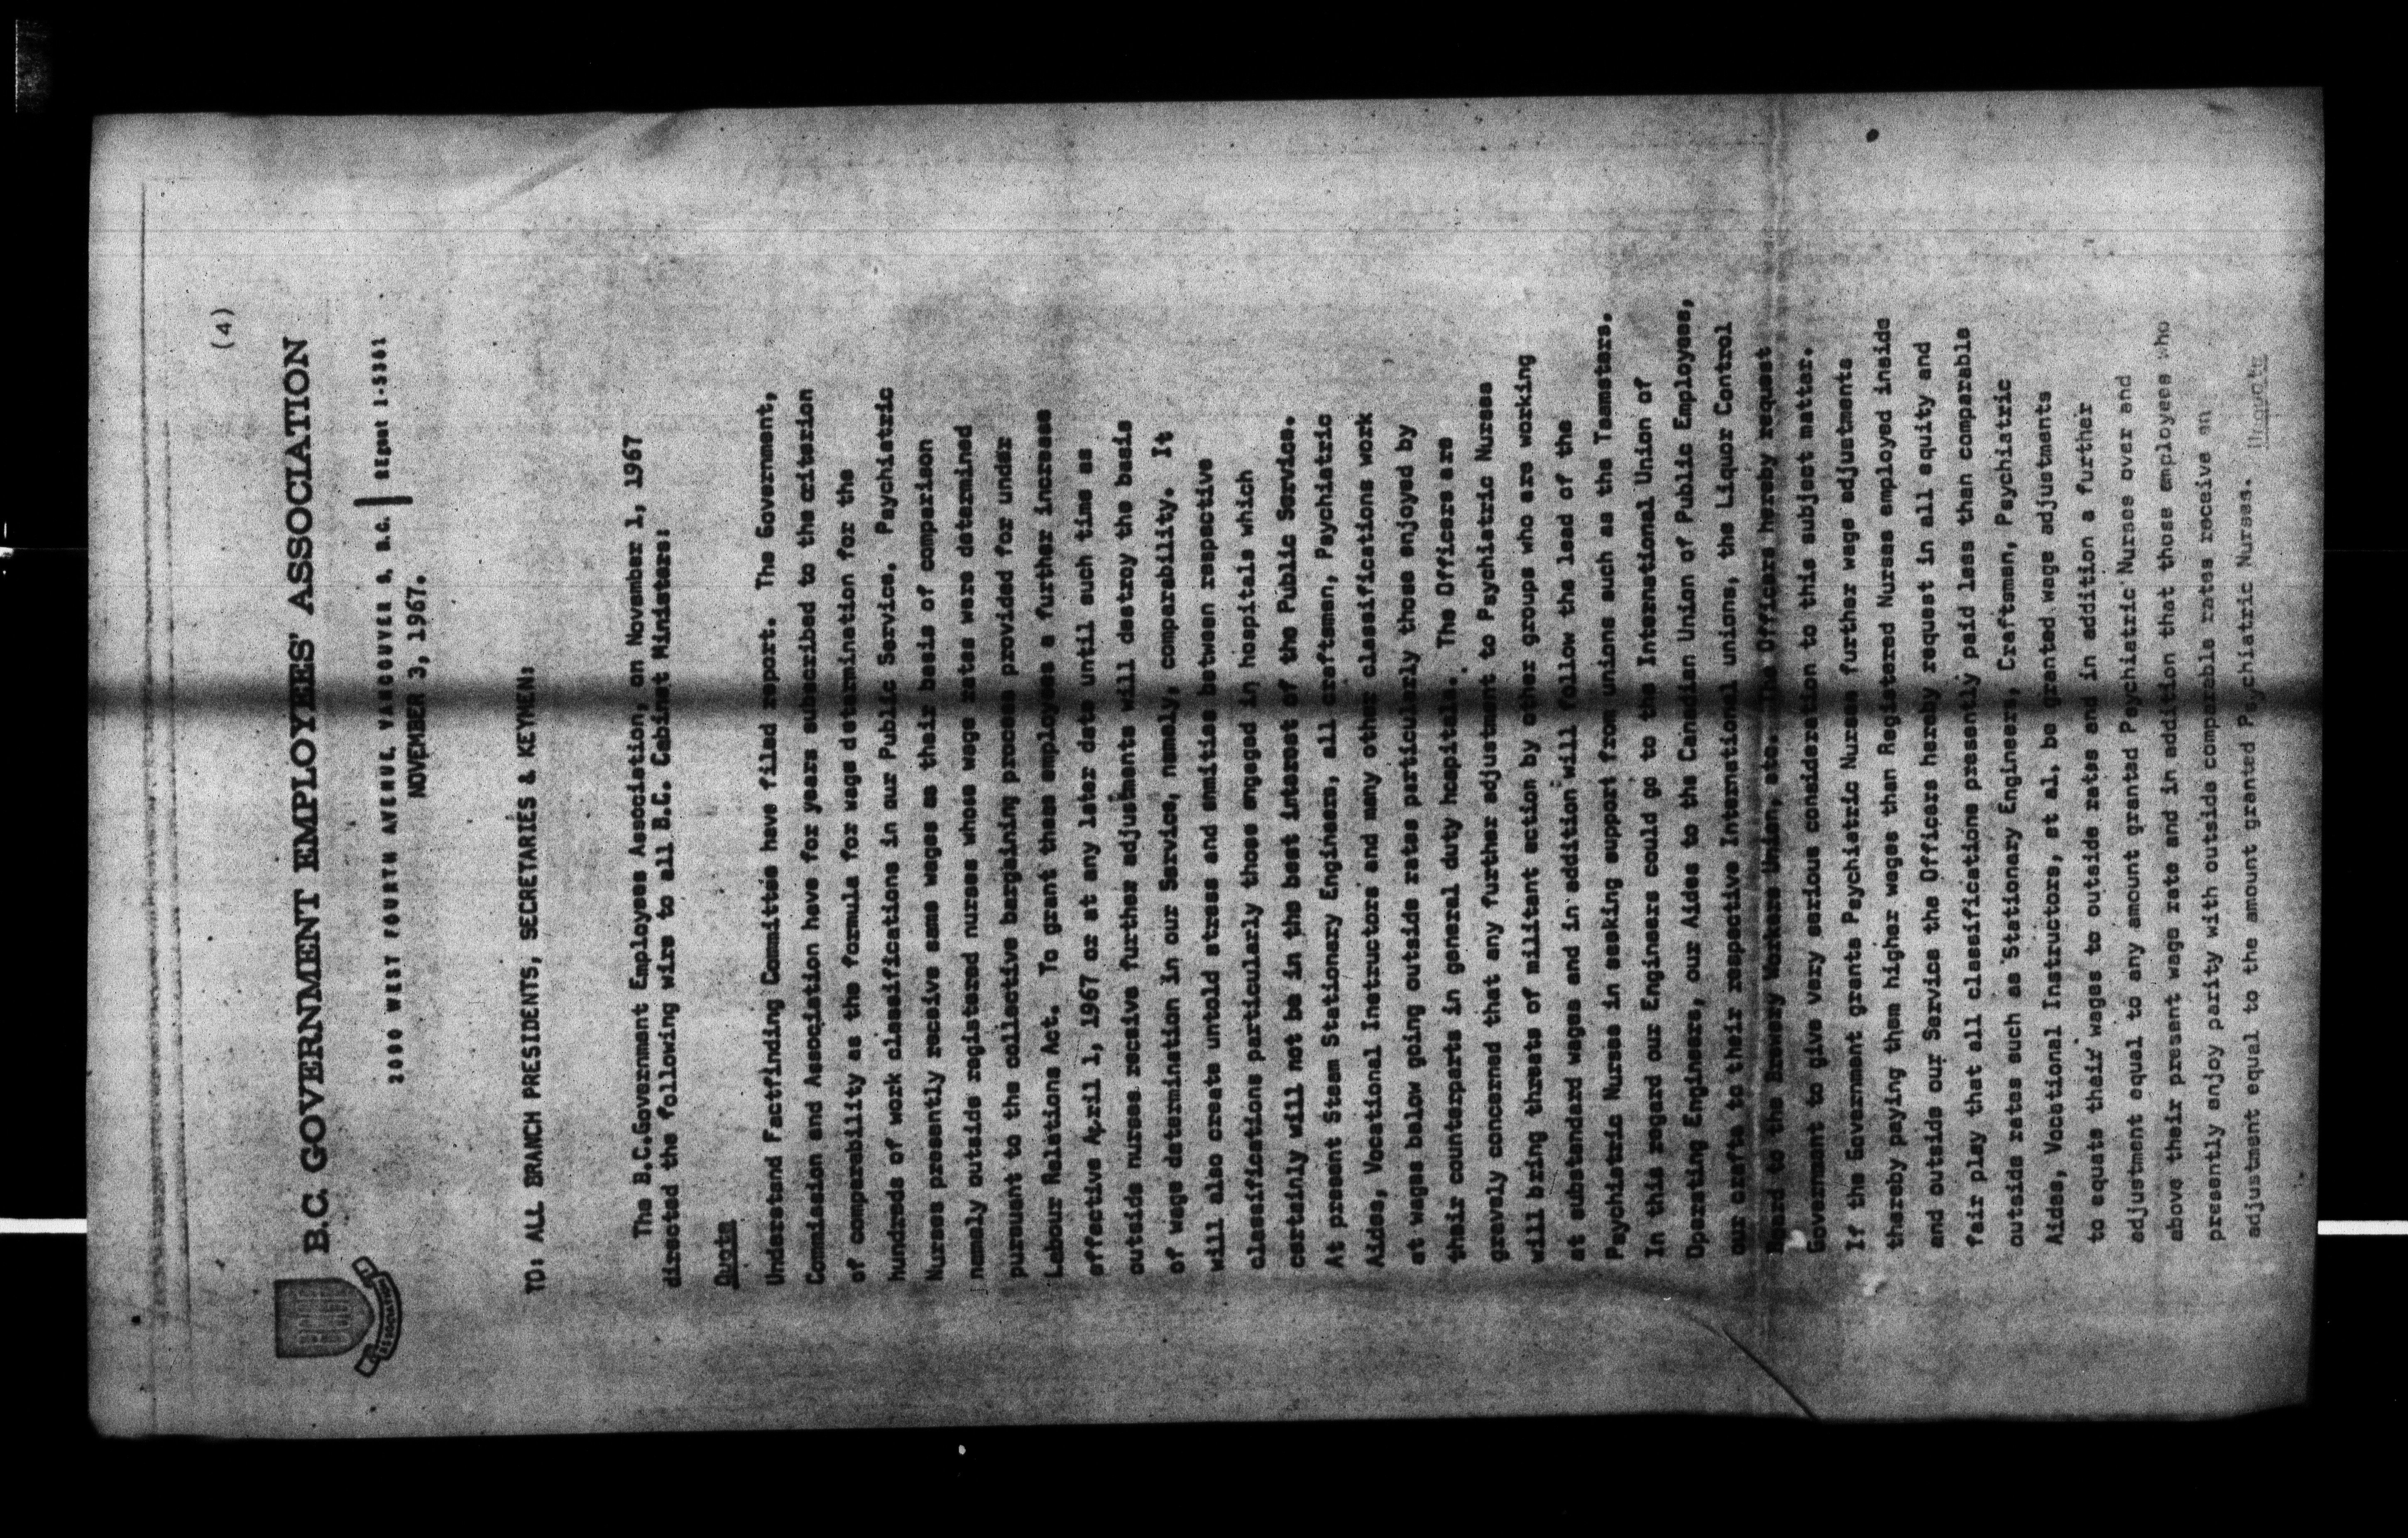 (4)
B.C. GOVERNMENT EMPLOYEES' ASSOCIATION
ASSOCIATION
2090 WEST FOURTH AVENUE, VANCOUVER 9, B.C. REgent 1-5381
NOVEMBER 3, 1967.
TO: ALL BRANCH PRESIDENTS, SECRETARIES & KEYMEN:
The B.C.Government Employees Association, on November 1, 1967
directed the following wire to all B.C. Cabinet Ministers:
Quote
Understand Factfinding Committee have filed report. The Government,
Commission and Association have for years subscribed to the criterion
of comparability as the formula for wage determination for the
hundreds of work classifications in our Public Service. Psychiatric
Nurses presently receive same wages as their basis of comparison
namely outside registered nurses whose wage rates were determined
pursuant to the collective bargaining process provided for under
Labour Relations Act. To grant these employees a further increase
effective April 1, 1967 or at any later date until such time as
outside nurses receive further adjustments will destroy the basis
of wage determination in our Service, namely, comparability. It
will also create untold stress and enmities between respective
classifications particularly those engaged in hospitals which
certainly will not be in the best interest of the Public Service.
At present Steam Stationary Engineers, all craftsmen, Psychiatric
Aides, Vocational Instructors and many other classifications work
at wages below going outside rates particularly those enjoyed by
their counterparts in general duty hospitals. The Officers are
gravely concerned that any further adjustment to Psychiatric Nurses
will bring threats of militant action by other groups who are working
at substandard wages and in addition will follow the lead of the
Psychiatric Nurses in seeking support from unions such as the Teamsters.
In this regard our Engineers could go to the International Union of
Operating Engineers, our Aides to the Canadian Union of Public Employees,
our crafts to their respective International unions, the Liquor Control
Board to the Brewery Workers Union, etc. The Officers hereby request
Government to give very serious consideration to this subject matter.
If the Government grants Psychiatric Nurses further wage adjustments
thereby paying them higher wages than Registered Nurses employed inside
and outside our Service the Officers hereby request in all equity and
fair play that all classifications presently paid less than comparable
outside rates such as Stationary Engineers, Craftsmen, Psychiatric
Aides, Vocational Instructors, et al, be granted wage adjustments
to equate their wages to outside rates and in addition a further
adjustment equal to any amount granted Psychiatric Nurses over and
above their present wage rate and in addition that those employees who
presently enjoy parity with outside comparable rates receive an
adjustment equal to the amount granted Psychiatric Nurses. Unquote